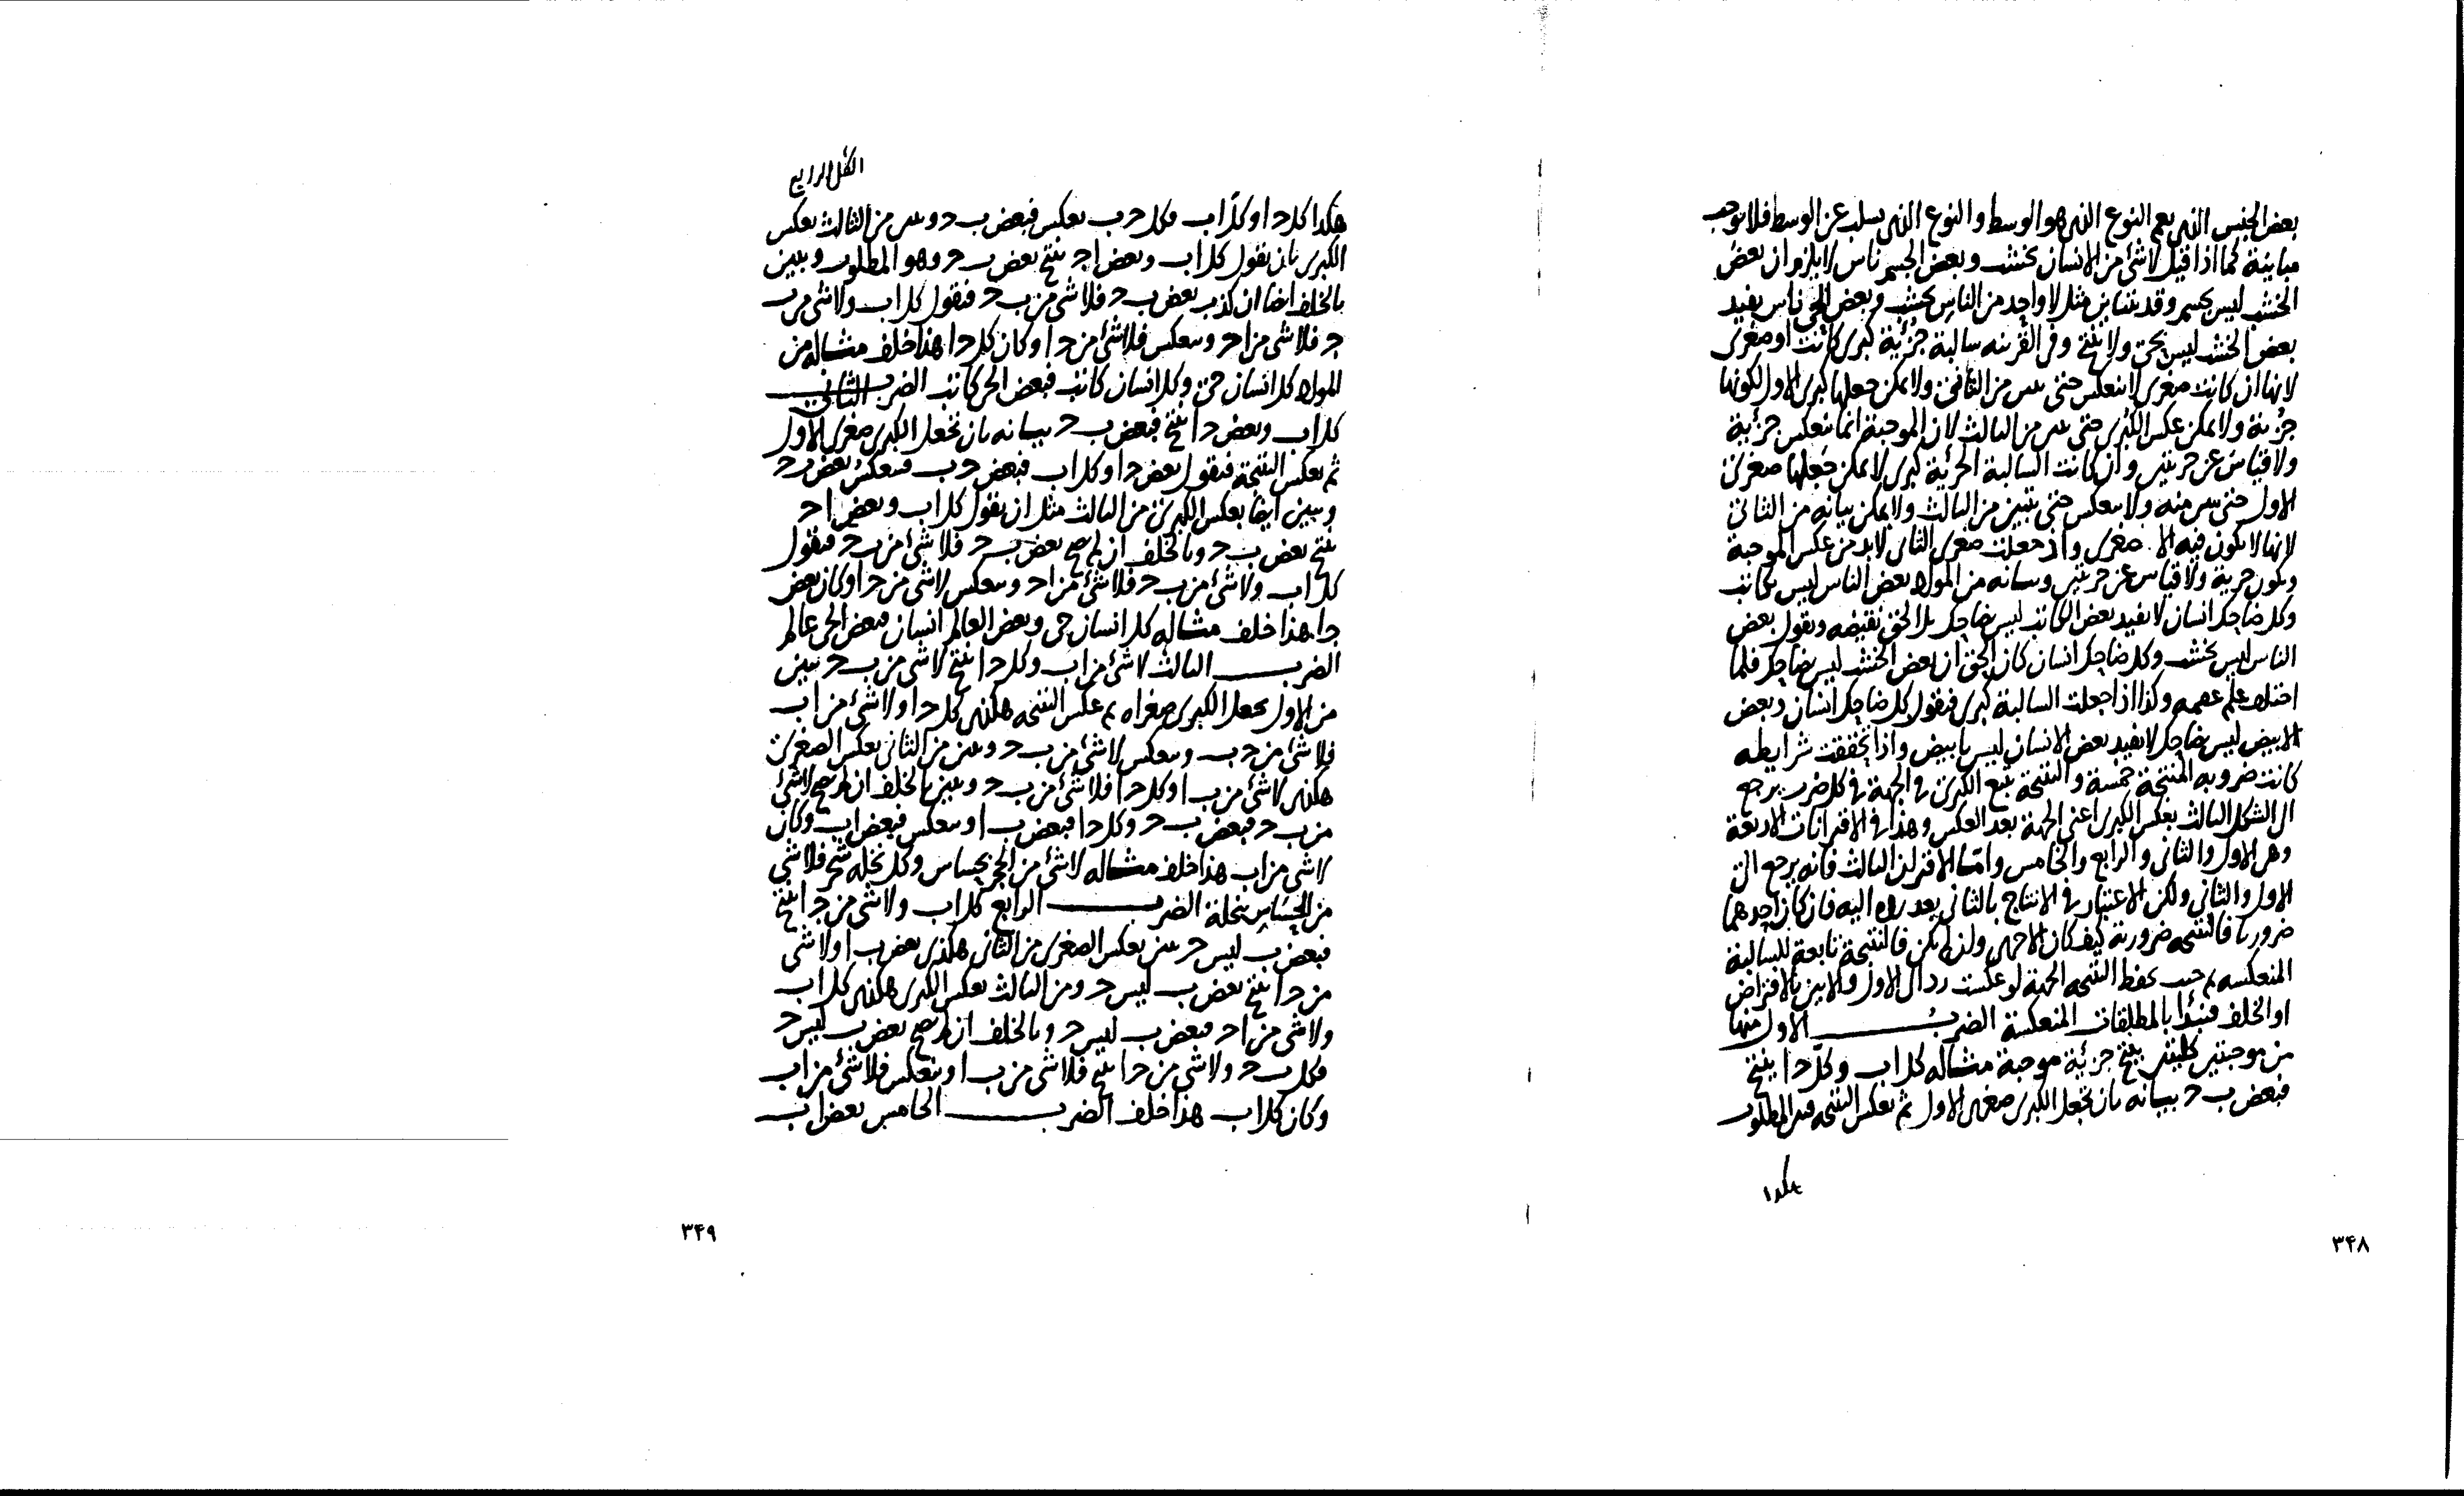 بعض الجنس الذي يعم النوع الذي هو الوسط والنوع الذي يسلب عن الوسط فلا توجب
مباينة كما اذا قيل لا شئ من الانسان بخشب وبعض الجسم ناس لا يلزم ان بعض
الخشب ليس بجسم وقد يتباين مثل لا واحد من الناس بخشب وبعض الحي ناس يفيد
بعض الخشب ليس بحي ولا ينتج وفي القرينه سالبة جزئية كبرى كانت او صغرى
لانها ان كانت صغرى لا تنعكس حتى من الثاني ولا يمكن جعلها كبرى الاول لكونها
جزئية ولا يمكن عكس الكبرى حتى من الثالث لان الموجبة انما تنعكس جزئية
ولا قياس عن جزئيتين وان كانت السالبة الجزئية كبرى لا يمكن جعلها صغرى
الاول حتى منه ولا تنعكس حتى تتبين من الثالث ولا يمكن بيانه من الثاني
لانها لا تكون فيه الا صغرى واذ جعلت صغرى الثاني لا بد من عكس الموجبة
وتكون جزئية ولا قياس عن جزئيتين وبيانه من المواد بعض الناس ليس بكاتب
وكل ضاحك انسان لا يفيد بعض الكاتب ليس بضاحك بل الحق نقيضه ونقول بعض
الناس ليس بخشب وكل ضاحك انسان كان الحق ان بعض الخشب ليس بضاحك فلما
اختلف علم عقمه وكذا اذا جعلت السالبة كبرى فنقول كل ضاحك انسان وبعض
الابيض ليس بضاحك لا يفيد بعض الانسان ليس بابيض واذا تحققت شرايطه
كانت ضروبه المنتجة خمسة والنتيجة تتبع الكبرى في الجهة في كل ضرب يرجع
الى الشكل الثالث بعكس الكبرى اعني الجهة بعد العكس وهذا في الاقترانات الاربعة
وهي الاول والثاني والرابع والخامس واما الاقتران الثالث فانه يرجع الى
الاول والثاني ولكن الاعتبار في الانتاج بالثاني بعد رده اليه فان كان احدهما
ضروريا فالنتيجه ضرورية كيف كان الاخرى وان لم يكن فالنتيجة تابعة للسالبة
المنعكسه حيث تحفظ النتيجه الجهة لو عكست رد الى الاول والا بين بالافتراض
او الخلف فنبدأ بالمطلقات المنعكسة الضرب الاول منها
من موجبتين كليتين ينتج جزئية موجبة مثاله كل اب وكل حا ينتج
فبعض ب ح بيانه بان تجعل الكبرى صغرى الاول ثم تعكس النتيجه المطلوب
هكذا
۳۴۸
الشكل الرابع
هكذا كل حا وكل اب فكل حب تعكس فبعض ب ح من الثالث بعكس
الكبرى بان نقول كل اب وبعض اح ينتج بعض ب ح وهو المطلوب وتبين
بالخلف ايضا ان كذب بعض ب ح فلا شئ من ب ح فنقول كل اب ولا شئ من ب
ح فلا شئ من اح وينعكس فلا شئ من حا وكان كل حا هذا خلف مثاله من
المواد كل انسان حي وكل كاتب انسان فبعض الحي كاتب الضرب الثاني
كل اب وبعض حا ينتج فبعض ب ح بيانه بان تجعل الكبرى صغرى الاول
ثم تعكس النتيجة فنقول بعض حا وكل اب فبعض حب فينعكس بعض ب ح
وتبين ايضا بعكس الكبرى من الثالث مثل ان نقول كل اب وبعض اح
ينتج بعض ب ح وبالخلف ان لم يصح بعض ب ح فلا شئ من ب ح فنقول
كل اب ولا شئ من ب ح فلا شئ من اح وينعكس لا شئ من حا وكان بعض
حا هذا خلف مثاله كل انسان حي وبعض العالم انسان فبعض الحي عالم
الضرب الثالث لا شئ من اب وكل حا ينتج لا شئ من ب ح تبين
من الاول بجعل الكبرى صغراه ثم عكس النتيجه هكذى كل حا ولا شئ من اب
فلا شئ من حب وينعكس لا شئ من ب ح وتبين من الثاني بعكس الصغرى
هكذى لا شئ من ب ا وكل حا فلا شئ من ب ح وتبين بالخلف ان لم يصح لا شئ
من ب ح فبعض ب ح وكل حا فبعض ب ا وينعكس فبعض اب وكان
لا شئ من اب هذا خلف مثاله لا شئ من الحجر بحساس وكل نخلة شجر فلا شئ
من الحساس بنخلة الضرب الرابع كل اب ولا شئ من حا ينتج
فبعض ب ليس ح تبين بعكس الصغرى من الثاني هكذى بعض ب ا ولا شئ
من حا ينتج بعض ب ليس ح ومن الثالث بعكس الكبرى هكذى كل اب
ولا شئ من اح فبعض ب ليس ح وبالخلف ان لم يصح بعض ب ليس ح
فكل ب ح ولا شئ من حا ينتج فلا شئ من ب ا وينعكس فلا شئ من اب
وكان كل اب هذا خلف الضرب الخامس بعض اب
۳۴۹